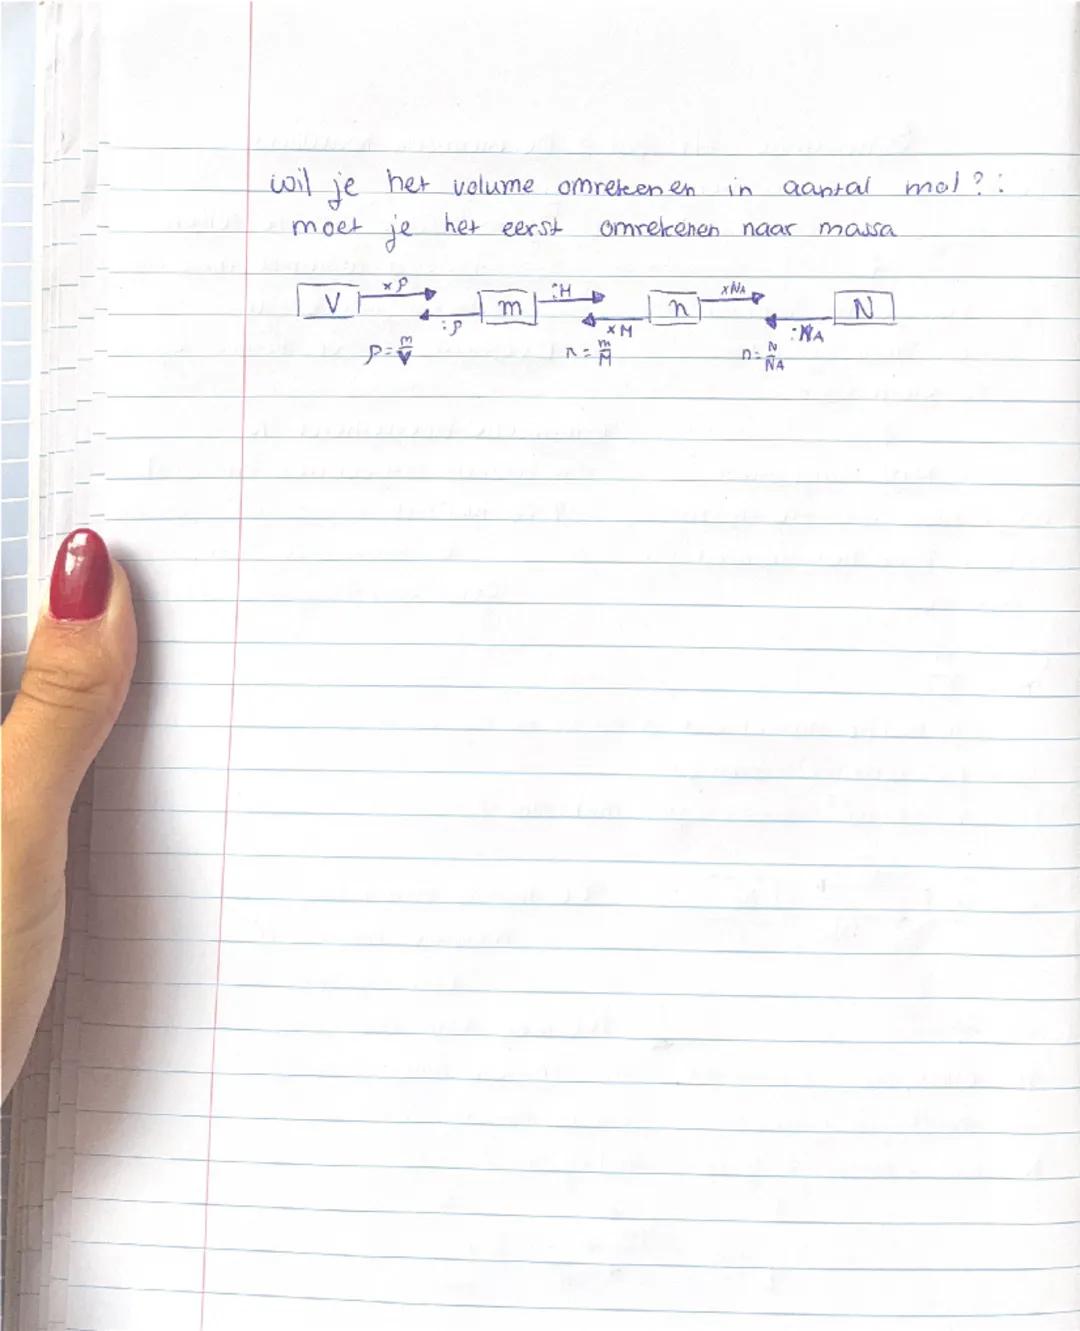 wil je het volume omrekenen in aantal mol?:
moet je het eerst omrekenen naar massa
V xρ :ρ m :M xM n xNA :NA N
ρ = m/V n = m/M n = N/NA